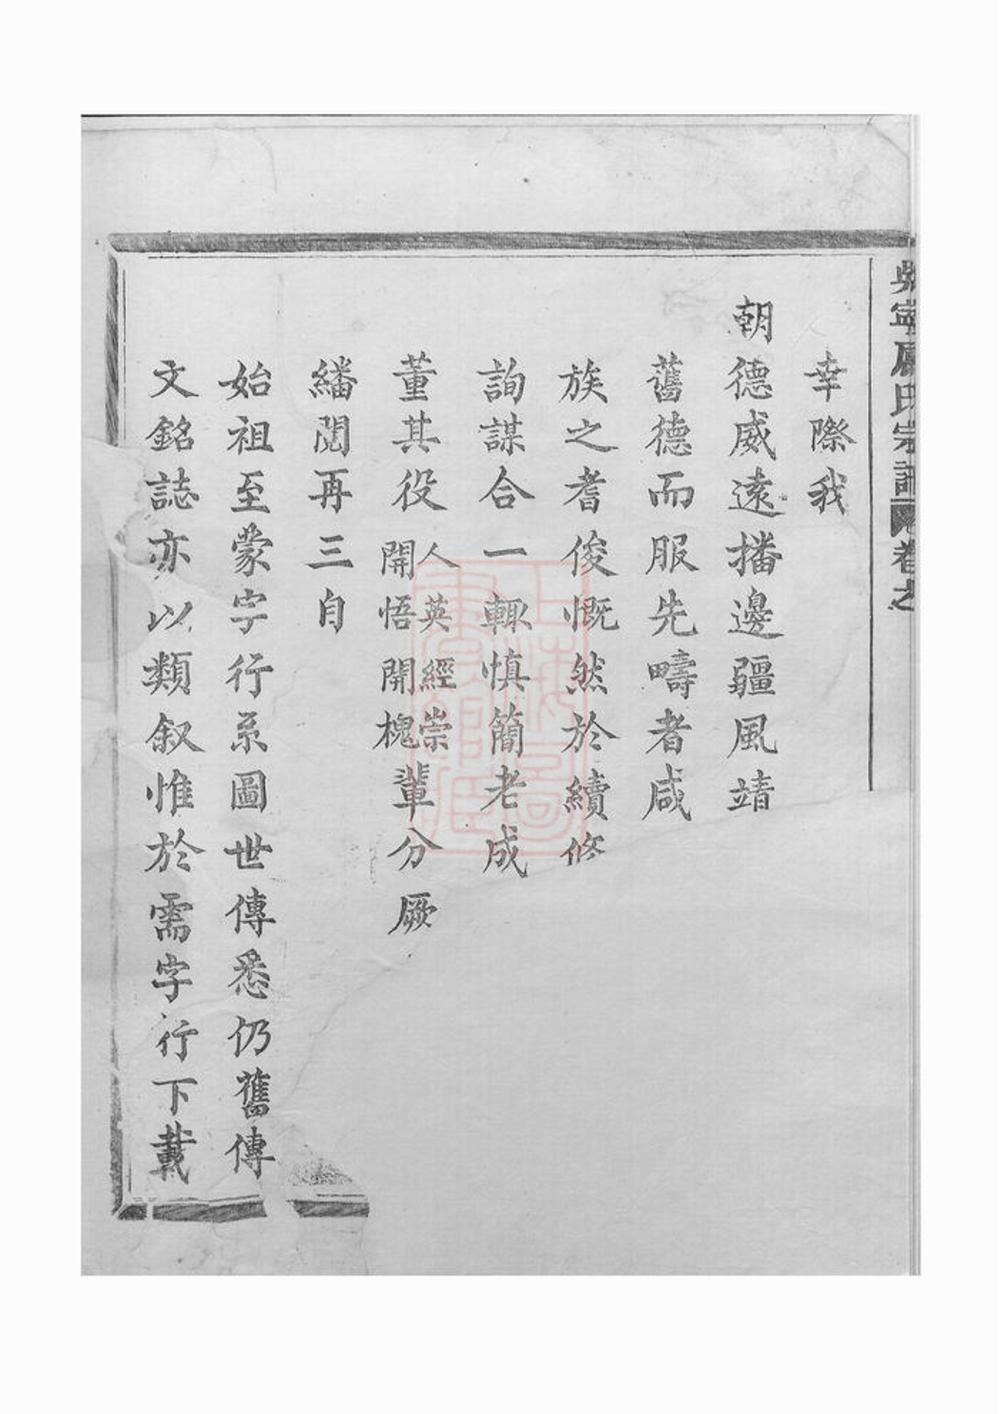 吳寧盧氏宗譜 卷之
幸際我
朝德威遠播邊疆風靖
舊德而服先疇者咸
族之耆俊慨然於續修
詢謀合一輒慎簡老成
董其役人英經崇開悟開槐輩分厥
繙閱再三自
始祖至蒙字行系圖世傳悉仍舊傳
文銘誌亦以類叙惟於需字行下載